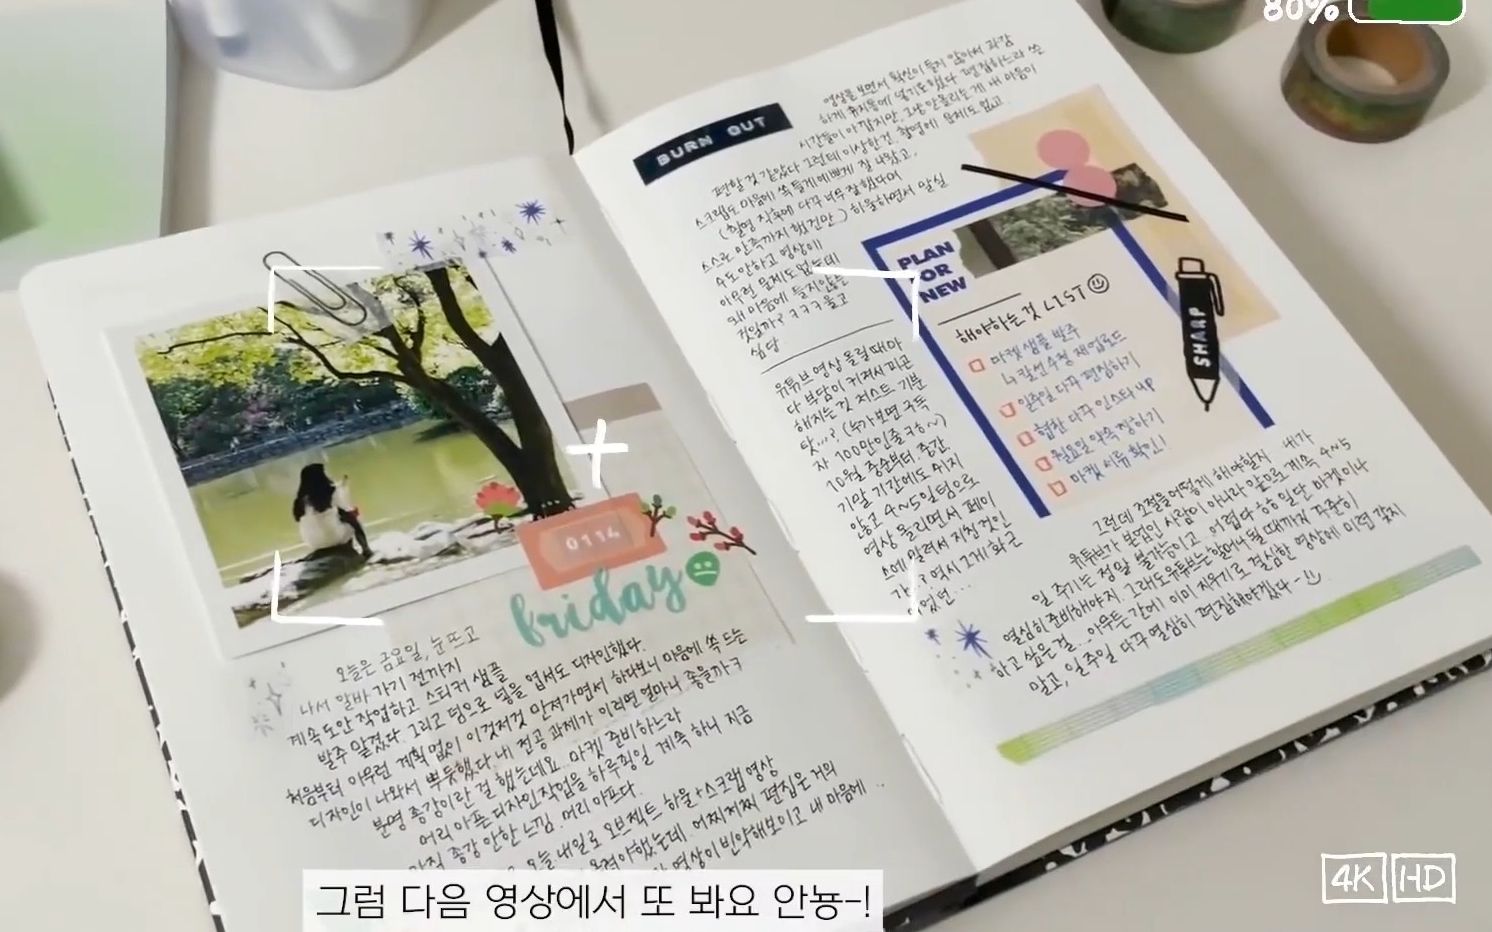 80%
BURN OUT
영상을 보면서 확신이 들지 않아서 과감
하게 휴지통에 넣기도 했다. 편집하느라 쓴
시간들이 아깝지만, 그냥 안올리는게 내 마음이
편할 것 같았다. 그런데 이상한건, 촬영에 문제도 없고
스크랩도 마음에 쏙 들게 예쁘게 잘 나왔고,
(촬영 직후에 다꾸 너무 잘했다며
스스로 만족까지 했건만..) 하울하면서 말실
수도 안하고 영상에
아무런 문제도 없는데
왜 마음에 들지않는
것일까? ㅋㅋㅋ 울고
싶당.
유튜브 영상 올릴 때마
다 부담이 커져서 피곤
해지는 것 저스트 기분
탓...? (누가보면 구독
자 100만인줄 ㅋㅎ~)
10월 중순부터 중간,
기말 기간에도 쉬지
않고 4~5일텀으로
영상 올리면서 페이
스에 말려서 지친 것인
가..? 역시 그게 화근
이었던...
PLAN
FOR
NEW
해야하는 것 LIST
마켓 샘플 발주
↳ 칼선수정 재업로드
일주일 다꾸 편집하기
협찬 다꾸 인스타 up
월요일 약속 정하기
마켓 서류 확인!
SHARP
그런데 조절을 어떻게 해야할지 내가
유튜브가 본업인 사람이 아니라 앞으로 계속 4~5
일 주기는 정말 불가능이고 어렵다 하하 일단 마켓이나
열심히 준비해야지. 그래도 유튜브는 할머니 될 때까지 꾸준히
하고 싶은 걸... 아무튼 간에 이미 지우기로 결심한 영상에 미련 갖지
말고, 일주일 다꾸 열심히 편집해야겠다-
0114
friday
오늘은 금요일, 눈 뜨고
나서 알바 가기 전까지
계속 도안 작업하고 스티커 샘플
발주 맡겼다. 그리고 덤으로 넣을 엽서도 디자인했다.
처음부터 아무런 계획 없이 이것저것 만져가면서 하다보니 마음에 쏙 드는
디자인이 나와서 뿌듯했다. 내 전공 과제가 이러면 얼마나 좋을까ㅋ
분명 종강이란 걸 했는데요.. 마켓 준비하느라
머리 아픈 디자인작업을 하루죙일 계속 하니 지금
아직 종강 안한 느낌. 머리 아프다.
오늘 내일로 오브젝트 하울+스크랩 영상
올려야했는데. 어찌저찌 편집은 거의
영상이 빈약해보이고 내 마음에..
그럼 다음 영상에서 또 봐요 안뇽-!
4K HD